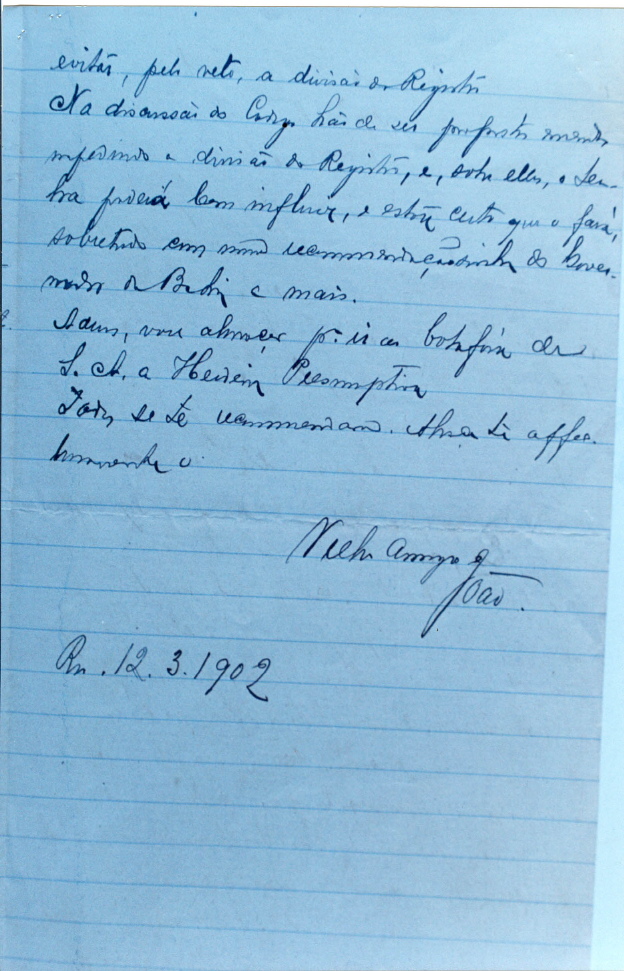 evitar, pelo veto, a divisão do Registro
Na discussão do Codigo hão de ser propostas emendas
impedindo a divisão do Registro, e, sobre ellas, o Sea-
bra poderá bem influir, e estou certo que o fará,
sobretudo com uma recommendaçãosinha do Gover-
nador da Bahia e mais.
Adeus, vou almoçar p.ª ir ao botafóra de
S. A. a Herdeira Presumptiva
Todos se te recommendam. Abraça-te affec-
tuosamente o
Velho amigo
João.
Rio. 12. 3. 1902